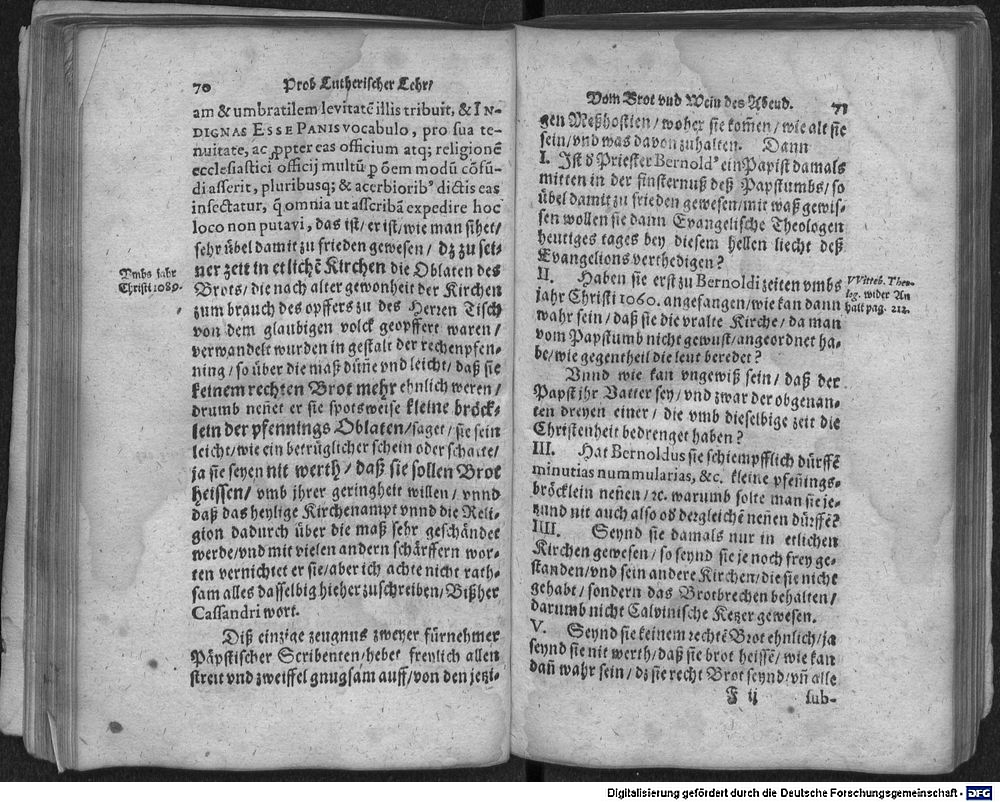 70 Prob Lutherischer Lehr/
am & umbratilem levitatē illis tribuit, & IN-
DIGNAS ESSE PANIS vocabulo, pro sua te-
nuitate, ac ꝓpter eas officium atq; religionē
ecclesiastici officij multū p oēm modū cōfū-
di asserit, pluribusq; & acerbiorib' dictis eas
insectatur, q̄ omnia ut ascribā expedire hoc
loco non putavi, das ist/ er ist/ wie man sihet/
sehr übel damit zu frieden gewesen/ dz zu sei-
ner zeit in etlichē Kirchen die Oblaten des
Brots/ die nach alter gewonheit der Kirchen
zum brauch des opffers zu des Herren Tisch
von dem glaubigen volck geopffert waren/
verwandelt wurden in gestalt der rechenpfen-
ning/ so über die maß düñe vnd leicht/ daß sie
keinem rechten Brot mehr ehnlich weren/
drumb neñet er sie spotsweise kleine bröck-
lein der pfennings Oblaten/ saget/ sie sein
leicht/ wie ein betrüglicher schein oder schatte/
ja sie seyen nit werth/ daß sie sollen Brot
heissen/ vmb jhrer geringheit willen/ vnnd
daß das heylige Kirchenampt vnnd die Reli-
gion dadurch über die maß sehr geschändet
werde/ vnd mit vielen andern schärffern wor-
ten vernichtet er sie/ aber ich achte nicht rath-
sam alles dasselbig hieher zuschreiben/ Bißher
Cassandri wort.
Diß einzige zeugnus zweyer fürnehmer
Päpstischer Scribenten/ hebet freylich allen
streit vnd zweiffel gnugsam auff/ von den jetzi-
Vmbs jahr
Christi 1089.
Vom Brot vnd Wein des Abend. 71
gen Meßhostien/ woher sie kom̃en/ wie alt sie
sein/ vnd was davon zuhalten. Dann
I. Ist d' Priester Bernold' ein Papist damals
mitten in der finsternuß deß Papstumbs/ so
übel damit zu frieden gewesen/ mit waß gewis-
sen wollen sie dann Evangelische Theologen
heutiges tages bey diesem hellen liecht deß
Evangelions verthedigen?
II. Haben sie erst zu Bernoldi zeiten vmbs
jahr Christi 1060. angefangen/ wie kan dann
wahr sein/ daß sie die vralte Kirche/ da man
vom Papstumb nicht gewust/ angeordnet ha-
be/ wie gegentheil die leut beredet?
Vnnd wie kan vngewiß sein/ daß der
Papst jhr Vatter sey/ vnd zwar der obgenan-
ten dreyen einer/ die vmb dieselbige zeit die
Christenheit bedrenget haben?
III. Hat Bernoldus sie schiempfflich dürffē
minutias nummularias, &c. kleine pfeñings-
bröcklein neñen/ ꝛc. warumb solte man sie je-
tzund nit auch also oď dergleichē neñen dürffē?
IIII. Seynd sie damals nur in etlichen
Kirchen gewesen/ so seynd sie je noch frey ge-
standen/ vnd sein andere Kirchen/ die sie nicht
gehabt/ sondern das Brotbrechen behalten/
darumb nicht Calvinische Ketzer gewesen.
V. Seynd sie keinem rechtē Brot ehnlich/ ja
seynd sie nit werth/ daß sie brot heissē/ wie kan
dañ wahr sein/ dz sie recht Brot seynd/ vñ alle
F ij sub-
VVitteb. Theo-
log. wider An
halt pag. 212.
Digitalisierung gefördert durch die Deutsche Forschungsgemeinschaft - DFG